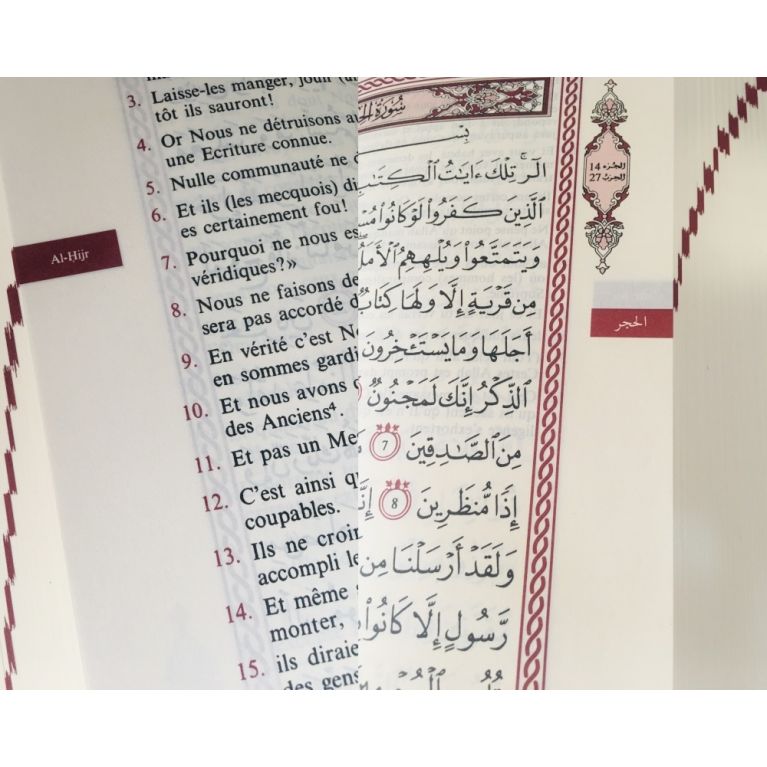 3. Laisse-les manger, jouir
tôt ils sauront!
4. Or Nous ne détruisons
une Ecriture connue.
5. Nulle communauté ne
6. Et ils (les mecquois)
es certainement fou!
7. Pourquoi ne nous
véridiques?»
8. Nous ne faisons
sera pas accordé
9. En vérité c'est
en sommes
10. Et nous avons
des Anciens⁴.
11. Et pas un
12. C'est ainsi
coupables.
13. Ils ne
accompli
14. Et même
monter,
15. ils
des
Al-Hijr
سُورَةُ
الٓرۚ تِلۡكَ ءَايَٰتُ ٱلۡكِتَٰبِ
ٱلَّذِينَ كَفَرُوا۟ لَوۡ كَانُوا۟
وَيَتَمَتَّعُوا۟ وَيُلۡهِهِمُ ٱلۡأَمَلُ
مِن قَرۡيَةٍ إِلَّا وَلَهَا كِتَابٌ
أَجَلَهَا وَمَا يَسۡتَـٔۡخِرُونَ
ٱلذِّكۡرُ إِنَّكَ لَمَجۡنُونٌ
مِنَ ٱلصَّٰدِقِينَ 7
إِذًا مُّنظَرِينَ 8
وَلَقَدۡ أَرۡسَلۡنَا مِن
رَّسُولٍ إِلَّا كَانُوا۟
الجزء 14
الحزب 27
الحجر